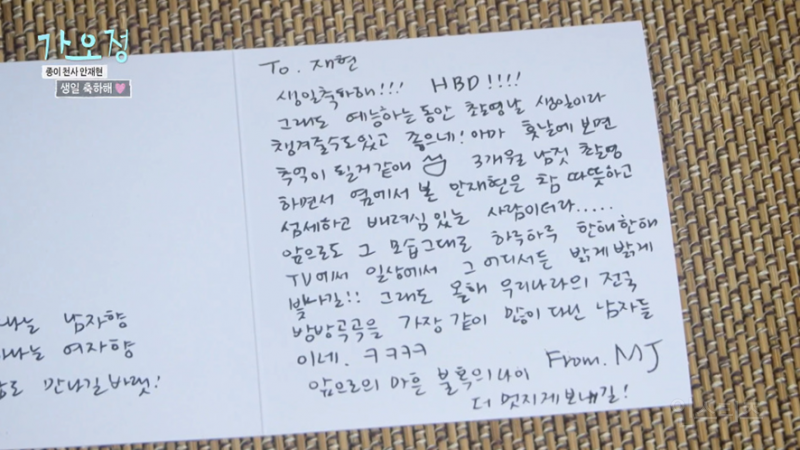 가오정
종이 천사 안재현
생일 축하해
To. 재현
생일축하해!!! HBD!!!!
그래도 예능하는동안 촬영날 생일이라
챙겨줄수도있고 좋으네! 아마 훗날에 보면
추억이 될거같애 3개월 남짓 촬영
하면서 옆에서 본 안재현은 참 따뜻하고
섬세하고 배려심있는 사람이더라.....
앞으로도 그 모습그대로 하루하루 한해한해
TV에서 일상에서 그 어디서든 밝게밝게
빛나길!! 그래도 올해 우리나라의 전국
방방곡곡을 가장 같이 많이 다닌 남자들
이네. ㅋㅋㅋㅋ
앞으로의 마흔 불혹의나이
더 멋지게보내길!
From. MJ
나는 남자향
나는 여자향
만나길바랫!